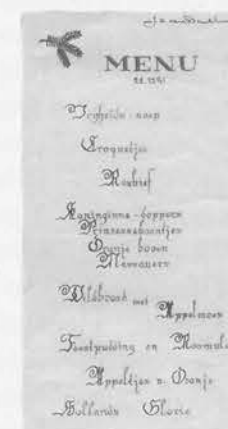 MENU
Vrijheids soep
Croquetjes
Rosbief
Koninginne-soppers
Prinsessboontjes
Oranje boven
Marrauers
Wildbraad met
Appelmoes
Feestpudding en
Appeltjes v. Oranje
Hollands Glorie